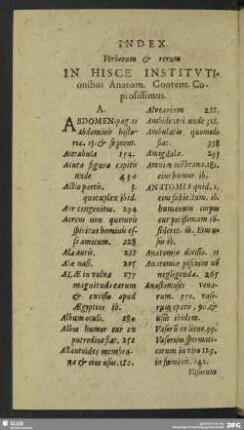 INDEX
Verborum & rerum
IN HISCE INSTITVTI-
onibus Anatom. Content. Co-
piosissimus.
A.
ABDOMEN. pag. 11
Abdominis histo-
ria. 13. & sequent.
Acetabula 154.
Acuta figura capitis
unde 430
Actio partis. 3.
quotuplex ibid.
Aer congenitus. 294
Aerem non quenvis
spiritus hominis es-
se amicum. 228
Ala auris. 288
Alæ nasi. 265
ALÆ in vulva 177
magnitudo earum
& excisio apud
Ægyptios ib.
Album oculi. 280
Album humor cur ex
putredine fiat. 252
Allantoides membra-
na & eius usus. 182.
Alvearium 288.
Ambidextri unde 318.
Ambulatio quomodo
fiat. 338
Amigdalæ 293.
Amnion membrana. 181.
eius humor ib.
ANATOMIA quid. 1.
eius subiectum. ib.
humanum corpus
cur potissimum
ib. Eius u-
sus ib.
Anatomiæ divisio. 11
Anatomia piscium
negligenda. 265
Anastomoses vena-
rum. 370. vaso-
rum capitis, 90. &
usus ibidem.
Vasorū in liene. 99.
Vasorum spermati-
corum in viro 129.
in fœminis. 142.
Vasorum